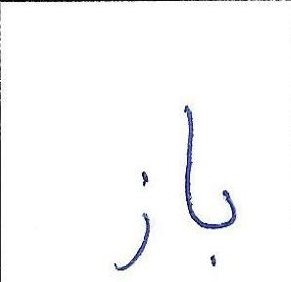 باز